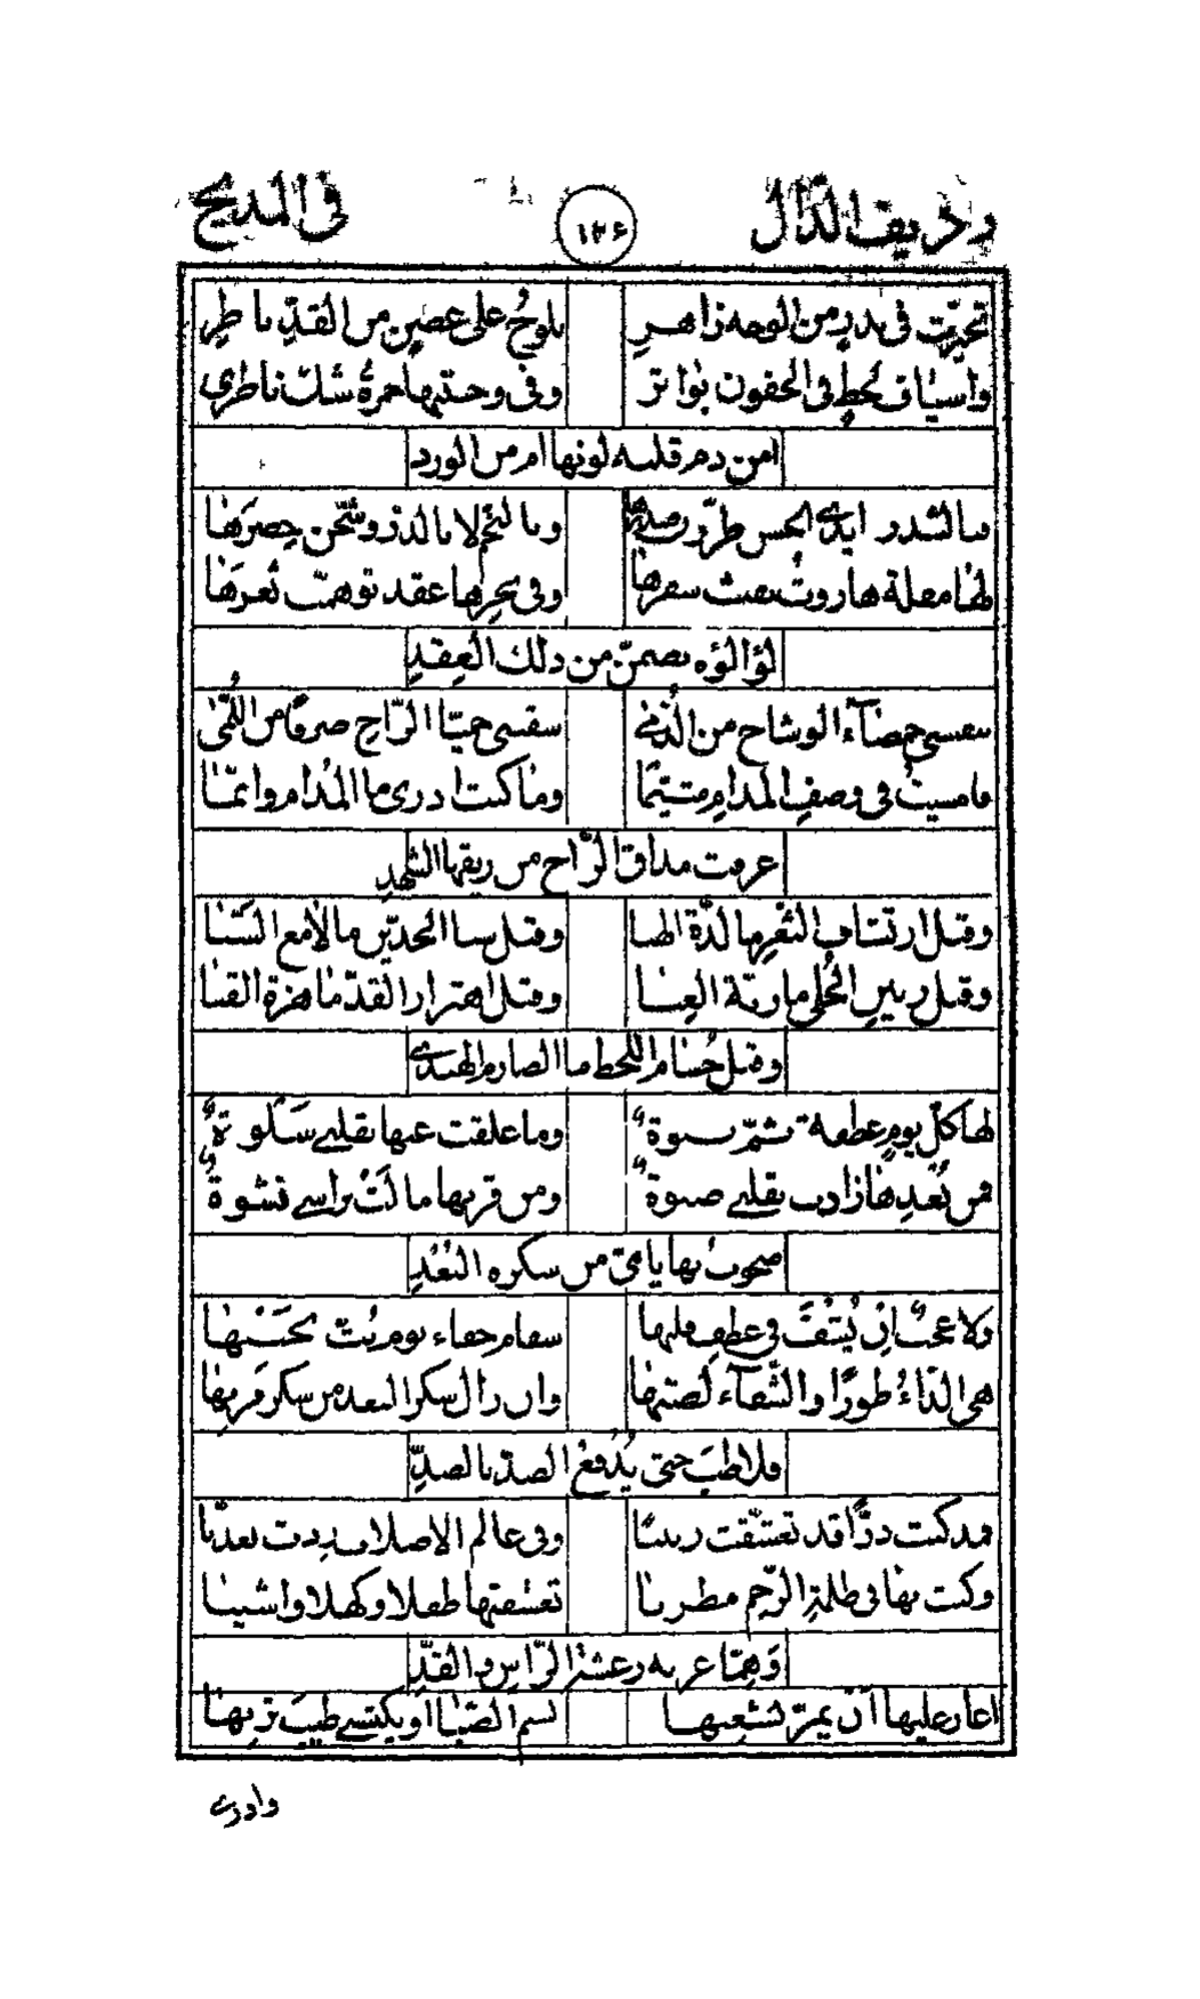 ورديف الدّال ١٢٦ فى المديح
تحيّرت فى بدر من الوجه زاهرِ يلوحُ على غصنٍ من القدِّ ناطِرِ
واسياف لحظٍ فى الجفون بواتر وفى وجنتيها حمرةٌ شك ناظرى
امن دم قلبه لونها ام من الورد
بالشذر ايدى الحسن طرّز صدرها وبالنجم لا بالدر وشّحن خصرَها
لها مقلة هاروتُ ينفث سحرها وفى نحرِها عقد توهمت ثغرَها
لؤالؤه نضمنّ من ذلك العِقدِ
بنفسى خمصآء الوشاح من الدُّمى سقتنى حميّا الرّاحِ صرفًا من اللُّمَى
فامسيتُ فى وصفِ المدام متيّمًا وما كنت ادرى ما المُدام وانمّا
عرفت مذاق الرّاح من ريقها الشهدِ
وقبل ارتشاف الثغرِ ما لذّة الهنا وقبل سنا الخدّين ما لامع السَّنا
وقبل رنينِ الحُلى ما رنّة الغِنا وقبل اهتزاز القدّ ما هزة القنا
وقبل حُسام اللحظ ما الصارم الهندى
لها كلّ يومٍ عطفة ثمّ نبوةٌ وما علقت عنها بقلبى سَلوةٌ
فمن بُعدِها زادت بقلبى صبوةٌ ومن قربها مالَتْ براسى نشوةٌ
صحوتُ بها يا مىّ من سكره البُعْدِ
ولا عجبٌ ان يُشفَ فى عطف قلبها سقام جفاء يوم بُتّ بجَنبها
هى الدّاءُ طورًا والشّفآء لصبّها وان زال سكر البعد من سكر قربها
فلا طبَ حتى يُدفعُ الصدّ بالصدِّ
فمذ كنت درًّا قد تعشّقت زينبًا وفى عالم الاصلاب زدت تعذّبا
وكنت بها فى ظلمة الرّحم مطربا تعشقتها طفلا وكهلا واشيبا
وَهِمّا عرته رعشة الرّاس والقدِّ
اغار عليها آن يمرّ لشعبها نسم الصّبا او يكتسى طيبَ تربها
وادرى